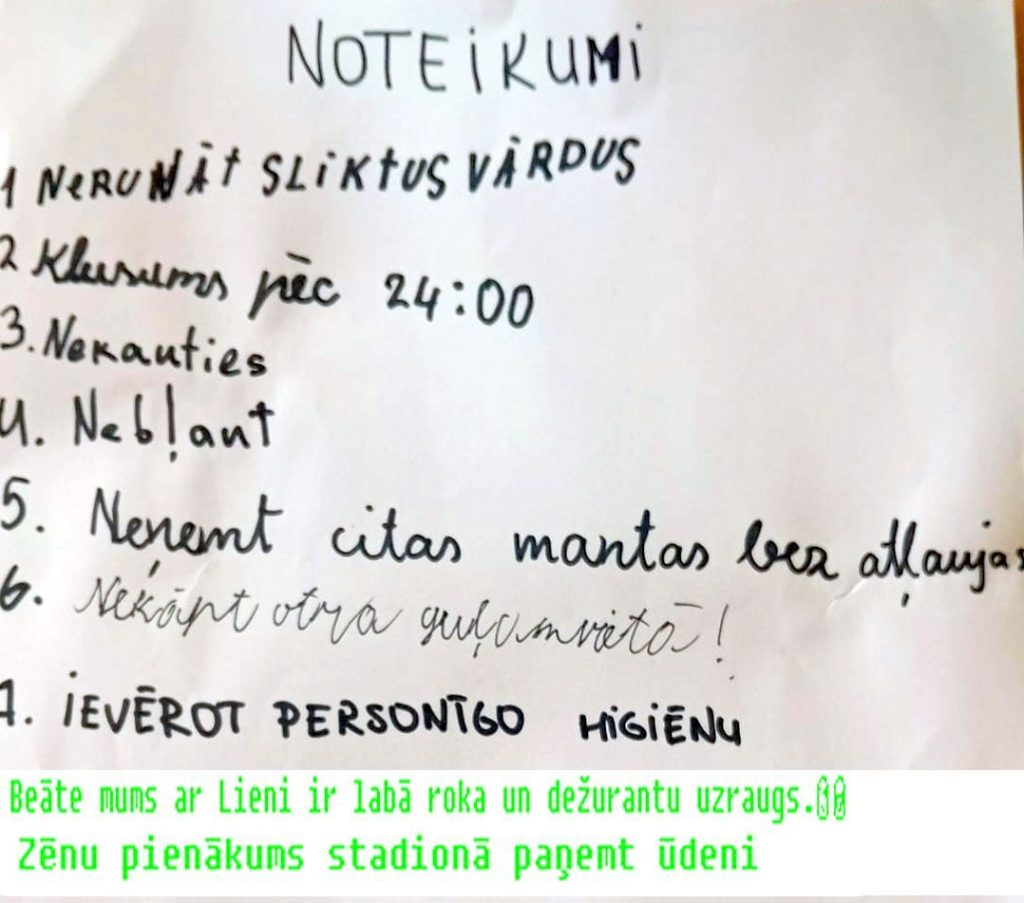 NOTEIKUMI
1 NERUNĀT SLIKTUS VĀRDUS
2 Klusums pēc 24:00
3. Nekauties
4. Nebļaut
5. Neņemt citas mantas bez atļaujas
6. Nekāpt otra guļamvietā!
7. IEVĒROT PERSONĪGO HIGIĒNU
Beāte mums ar Lieni ir labā roka un dežurantu uzraugs.
Zēnu pienākums stadionā paņemt ūdeni